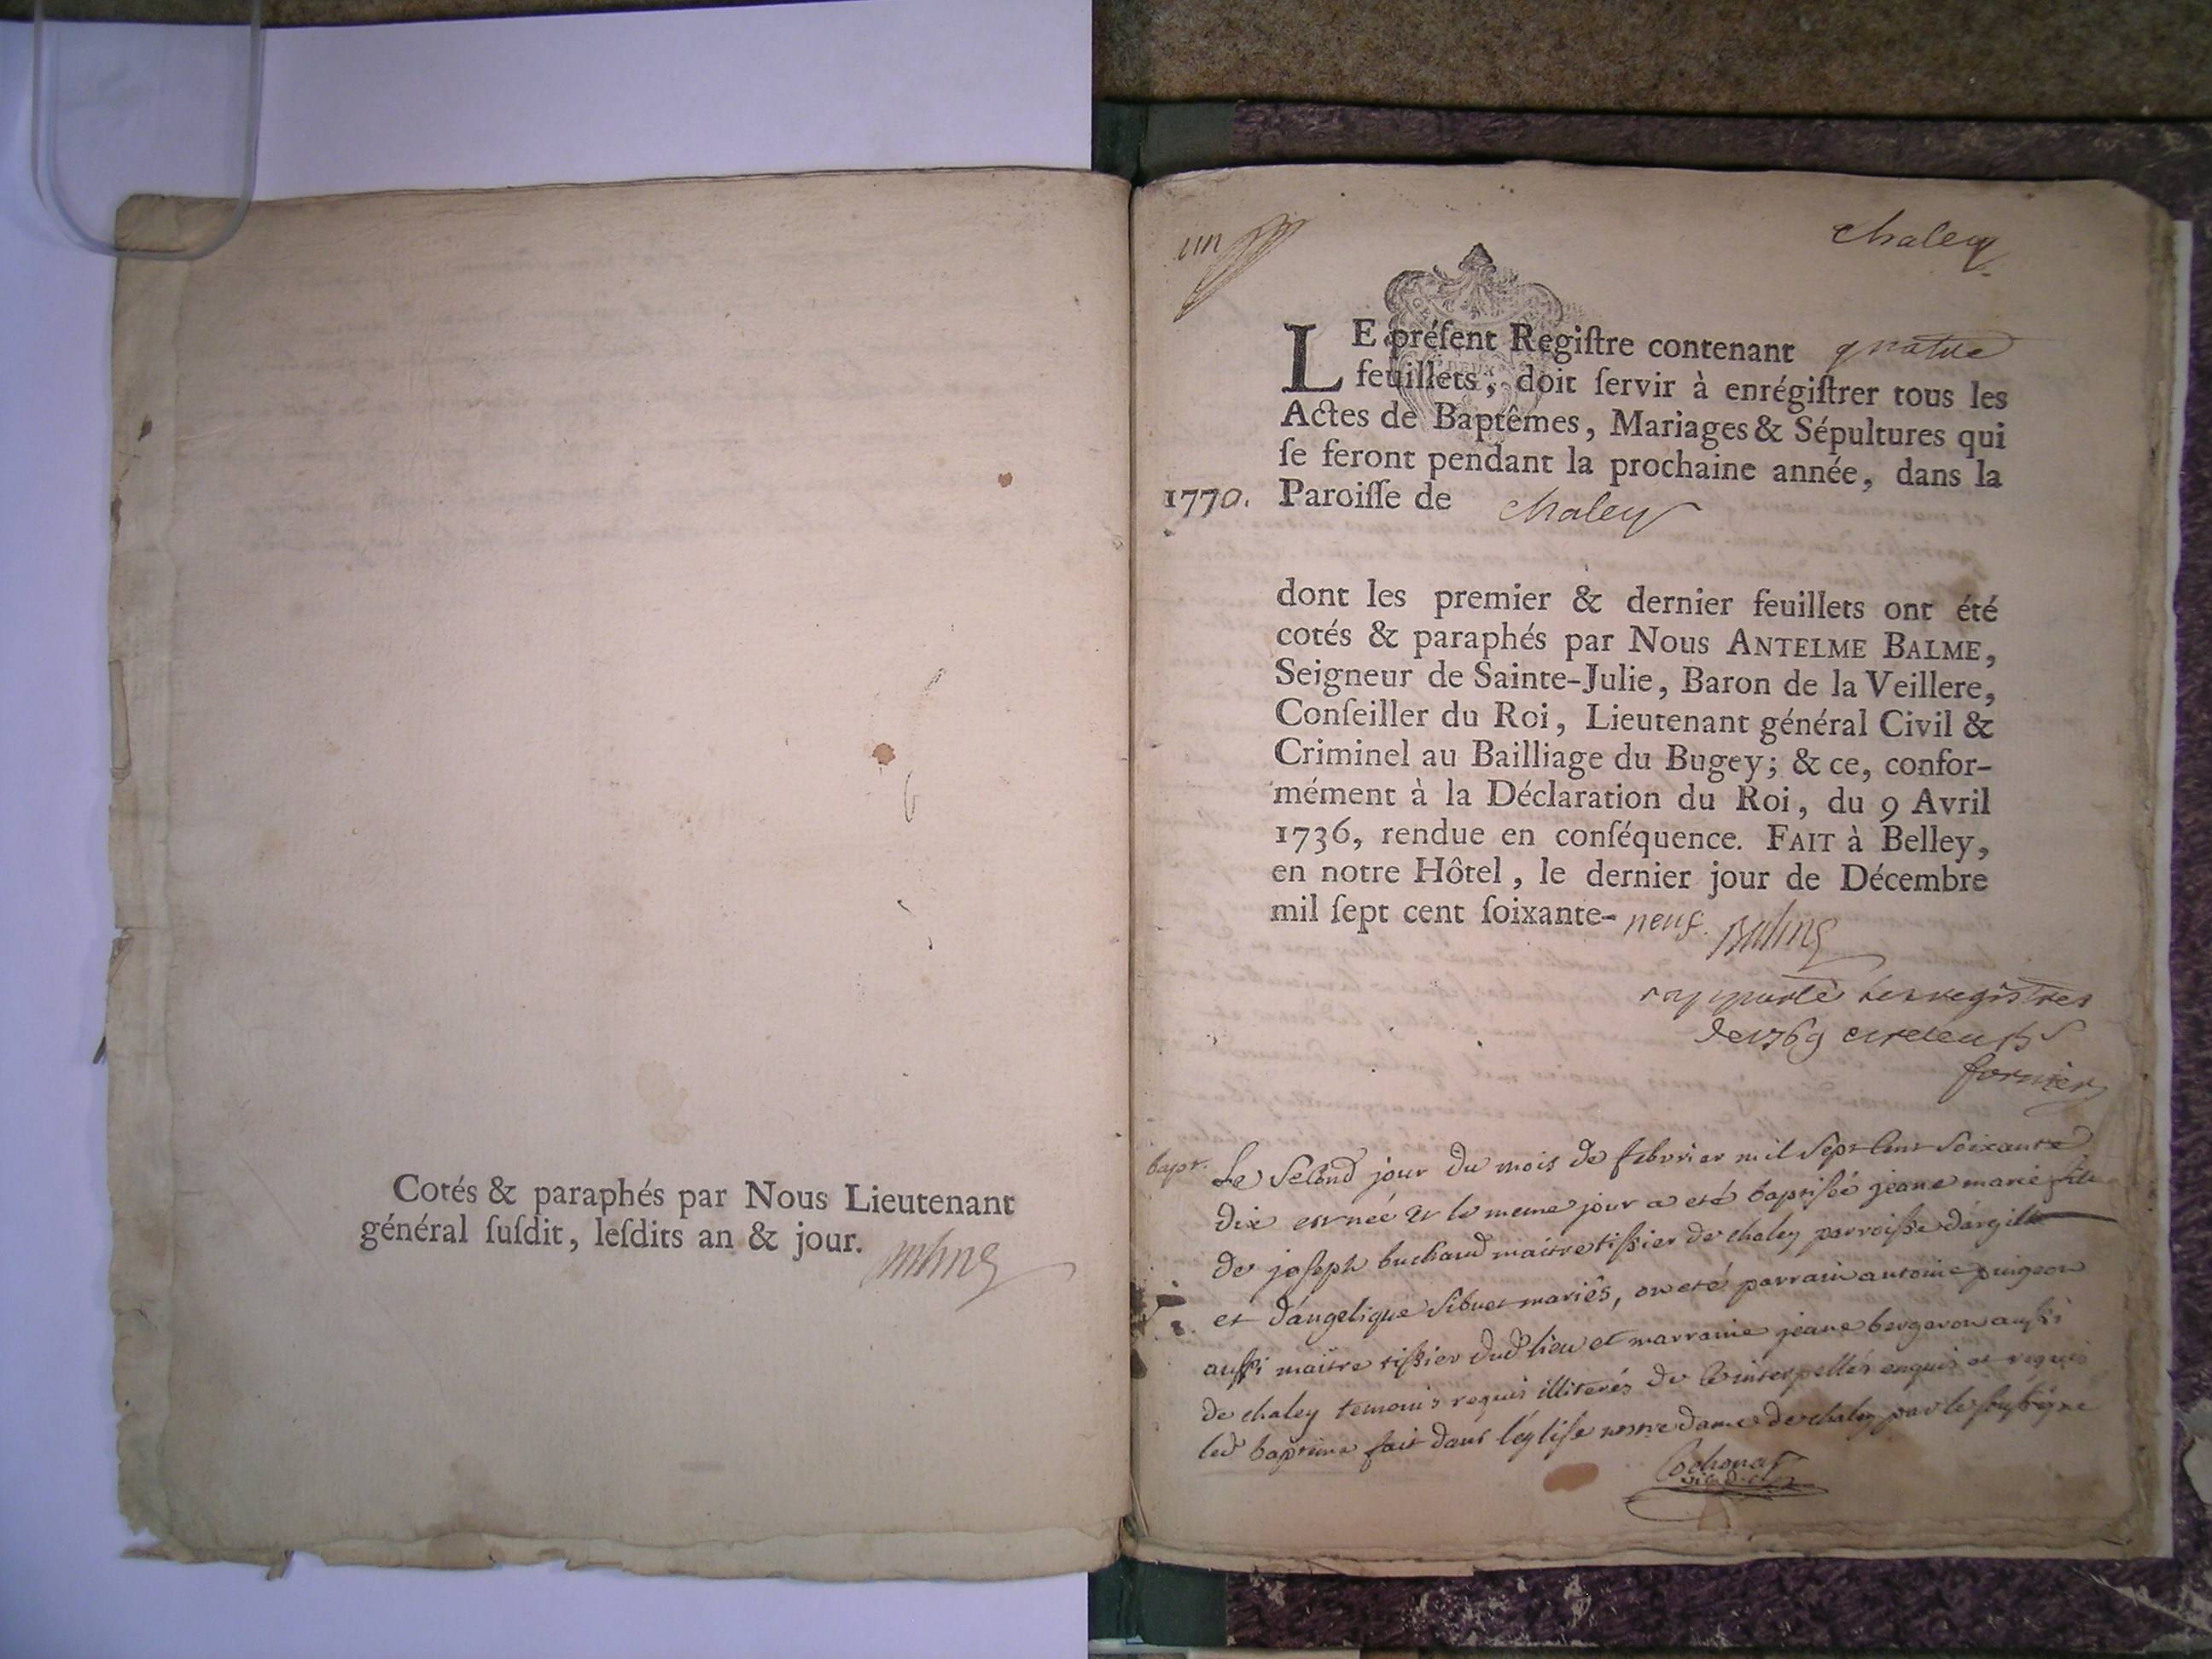 Cotés & paraphés par Nous Lieutenant
général ſuſdit, leſdits an & jour. Balme
un
chaley
LE préſent Regiſtre contenant quatre
feuillets, doit ſervir à enrégiſtrer tous les
Actes de Baptêmes, Mariages & Sépultures qui
ſe feront pendant la prochaine année, dans la
1770. Paroiſſe de chaley
dont les premier & dernier feuillets ont été
cotés & paraphés par Nous ANTELME BALME,
Seigneur de Sainte-Julie, Baron de la Veillere,
Conſeiller du Roi, Lieutenant général Civil &
Criminel au Bailliage du Bugey; & ce, confor-
mément à la Déclaration du Roi, du 9 Avril
1736, rendue en conſéquence. FAIT à Belley,
en notre Hôtel, le dernier jour de Décembre
mil ſept cent ſoixante- neuf. Balme
rapporté les registres
de 1769
fornier
bapt. Le second jour du mois de febvrier mil sept cent soixante
dix est née et le meme jour a eté baptisée jeane marie fille
de joseph buchard maitre tissier de chaley parroisse d'argil
et d'angelique sibuet mariés, ont eté parrain antoine pingeon
aussi maitre tissier dud lieu et marraine jeane bergeron aussi
de chaley temoins requis illiterés de ce interpellés enquis et requis
led baptême fait dans l'église notre dame de chaley par le soussigné
Cochonat